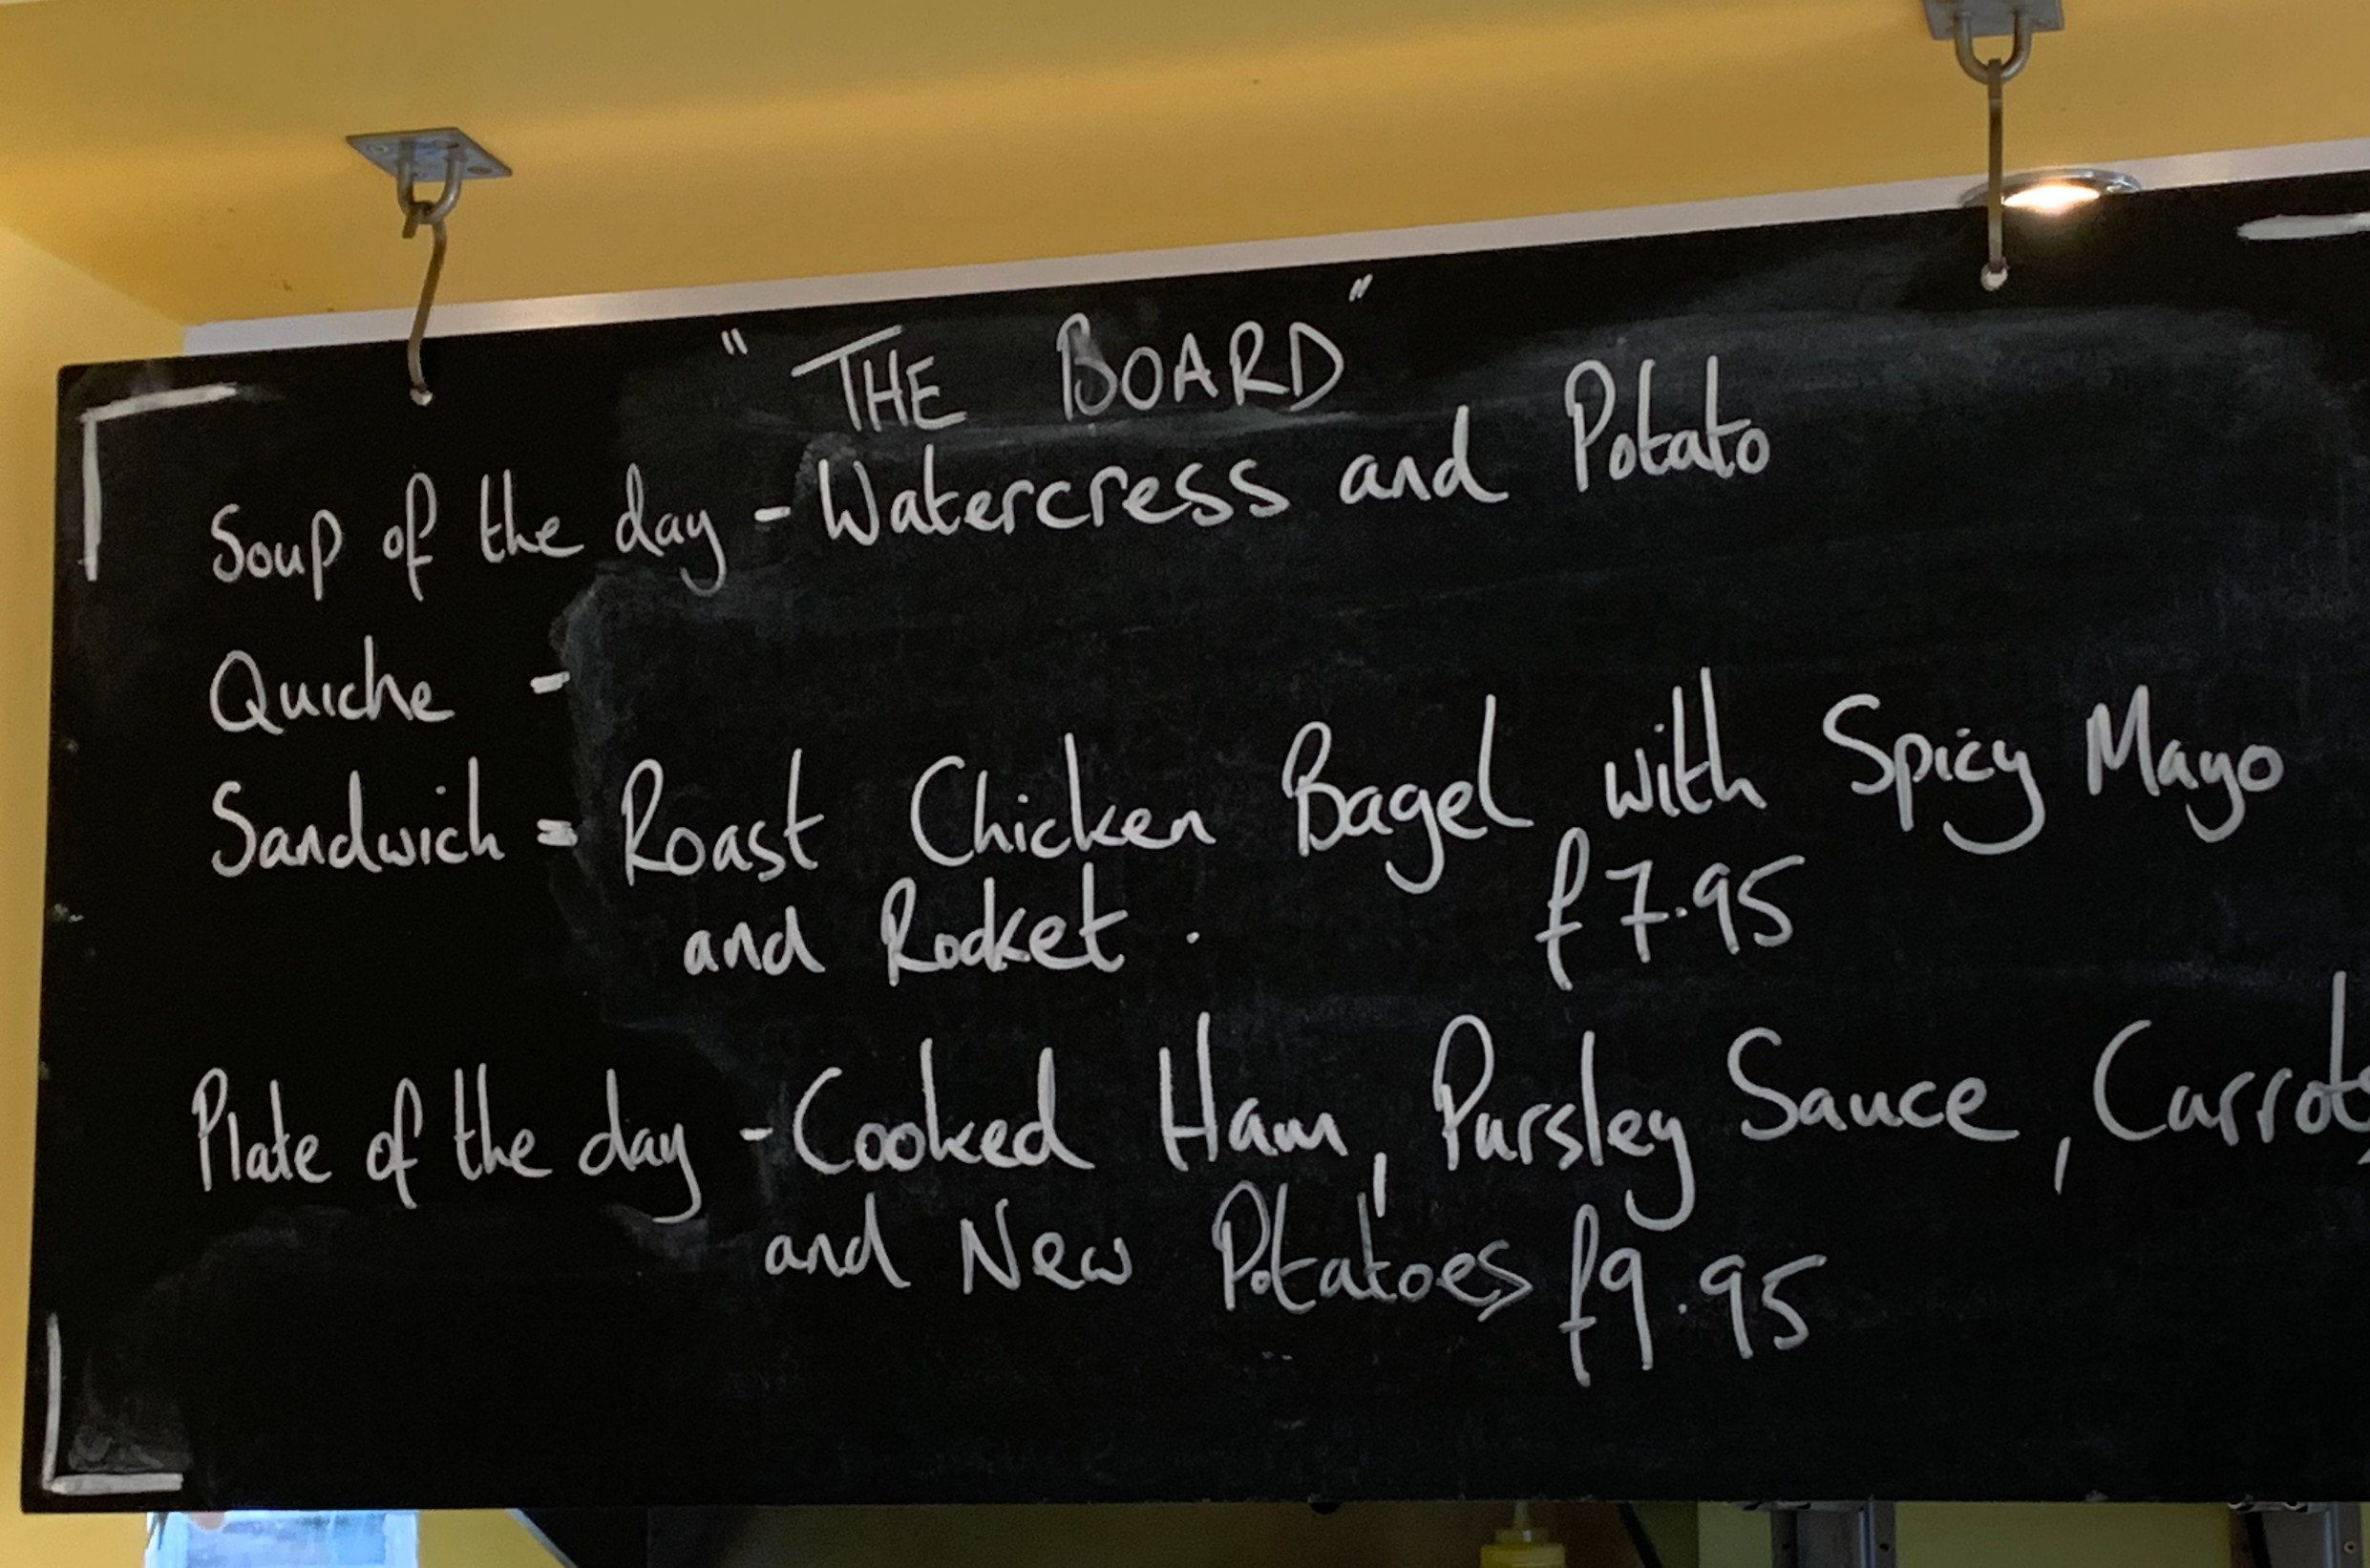 " THE BOARD "
Soup of the day - Watercress and Potato
Quiche -
Sandwich = Roast Chicken Bagel with Spicy Mayo
and Rocket . £7.95
Plate of the day - Cooked Ham, Parsley Sauce, Carrots
and New Potatoes £9.95